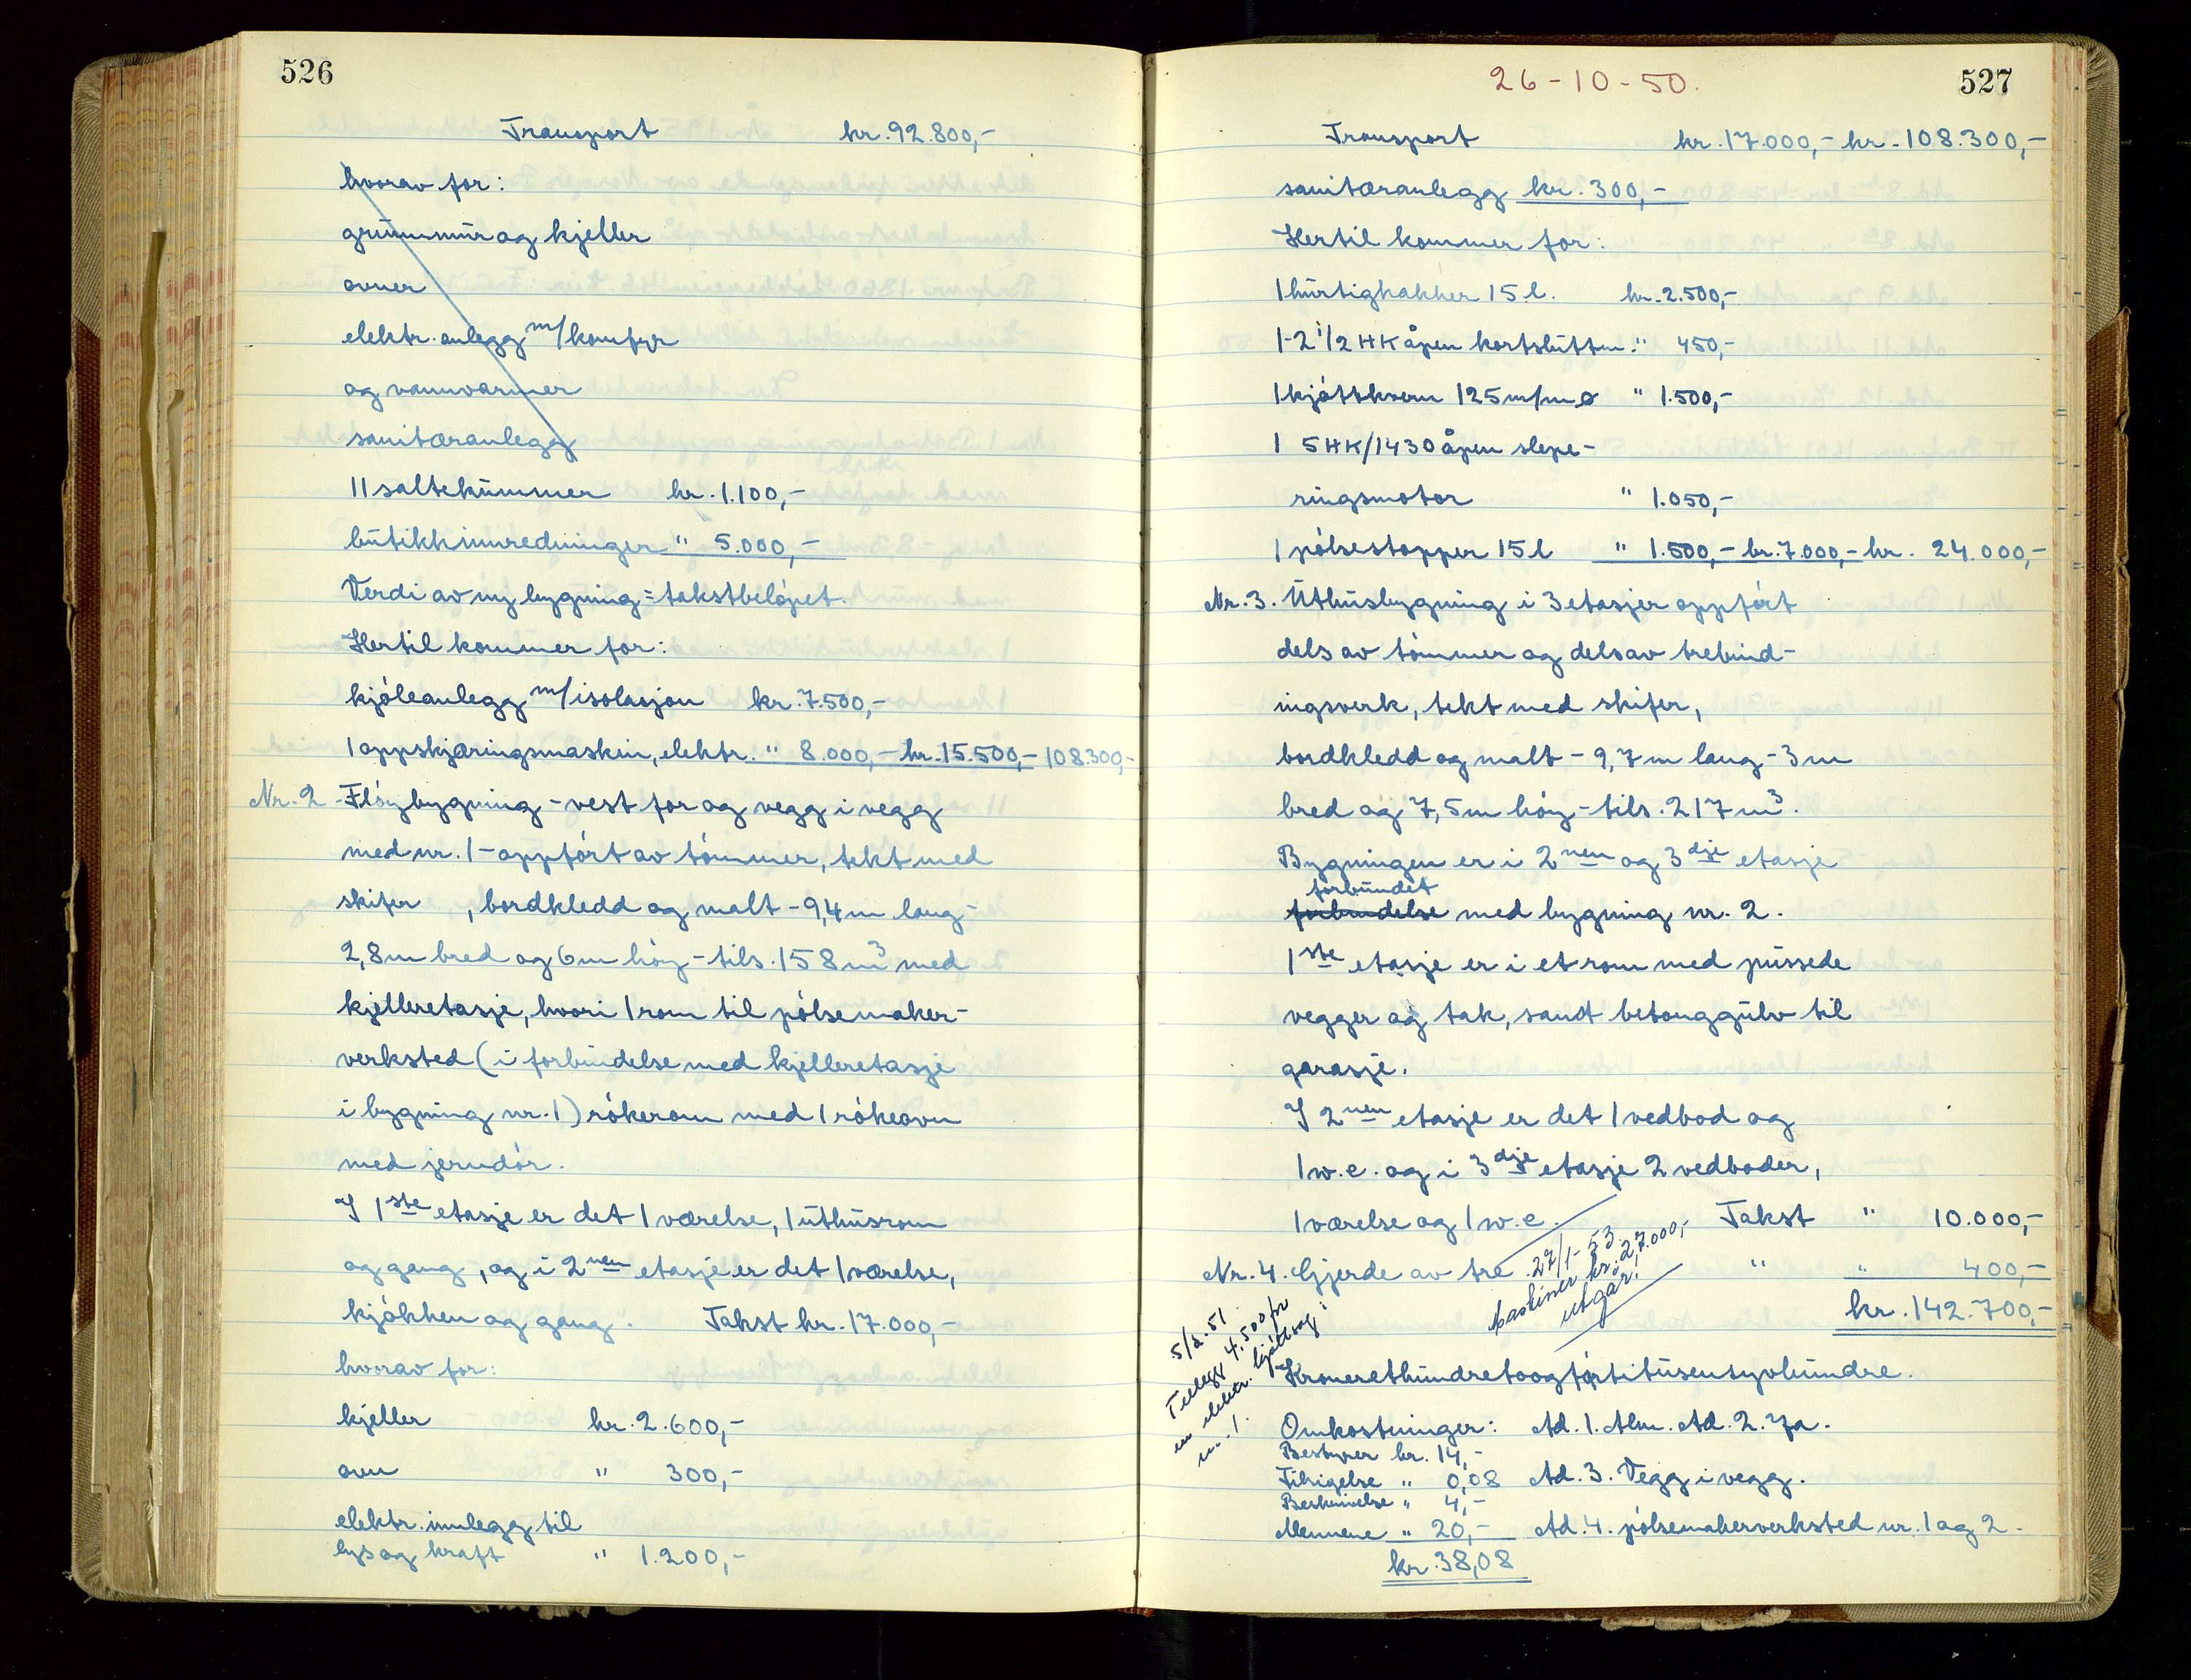 526
Transport kr. 92.800,-
hvorav for:
grunnmur og kjeller
ovner
elektr. anlegg m/komfyr
og vannvarmer
sanitæranlegg
11 saltekummer kr. 1.100,-
butikkinnredninger " 5.000,-
Verdi av ny bygning = takstbeløpet.
Hertil kommer for:
kjøleanlegg m/isolasjon kr. 7.500,-
1 oppskjæringsmaskin, elektr. " 8.000,- kr. 15.500,- 108.300,-
Nr. 2 - Fløybygning - vest for og vegg i vegg
med nr. 1 - oppført av tømmer, tekt med
skifer , bordkledd og malt - 9,4 m lang -
2,8 m bred og 6 m høy - tils. 158 m³ med
kjelleretasje, hvori 1 rom til pølsemaker-
verksted (i forbindelse med kjelleretasje
i bygning nr. 1) røkerom med 1 røkeovn
med jerndør.
I 1ste etasje er det 1 værelse, 1 uthusrom
og gang, og i 2nen etasje er det 1 værelse,
kjøkken og gang. Takst kr. 17.000,-
hvorav for:
kjeller kr. 2.600,-
ovn " 300,-
elektr. innlegg til
lys og kraft " 1.200,-
26-10-50.
527
Transport kr. 17.000,- kr. 108.300,-
sanitæranlegg kr. 300,-
Hertil kommer for:
1 hurtighakker 15 l. kr. 2.500,-
1-2 1/2 HK åpen kortslutt m. " 450,-
1 kjøttkvern 125 m/m ø " 1.500,-
1 5 HK/1430 åpen slepe-
ringsmotor " 1.050,-
1 pølsestopper 15 l " 1.500,- kr. 7.000,- kr. 24.000,-
Nr. 3. Uthusbygning i 3 etasjer oppført
dels av tømmer og dels av trebind-
ingsverk, tekt med skifer,
bordkledd og malt - 9,7 m lang - 3 m
bred og 7,5 m høy - tils. 217 m³.
Bygningen er i 2nen og 3dje etasje
forbundet
forbindelse med bygning nr. 2.
1ste etasje er i et rom med pussede
vegger og tak, samt betonggulv til
garasje.
I 2nen etasje er det 1 vedbod og
1 w.c. og i 3dje etasje 2 vedboder,
1 værelse og 1 w.c. Takst " 10.000,-
27/1-53.
Maskiner kr. 27.000,-
utgår.
Nr. 4. Gjerde av tre " " 400,-
kr. 142.700,-
5/2.51
Tillegg 4.500 for
en elektr. kjøttsag i
nr. 1.
Kronerethundretoogførtitusensyvhundre.
Omkostninger: Ad. 1. Alm. Ad. 2. Ja.
Bestyrer kr. 14,-
Tilsigelse " 0,08 Ad. 3. Vegg i vegg.
Beskrivelse " 4,-
Mennene " 20,- Ad. 4. pølsemakerverksted nr. 1 og 2.
kr. 38,08